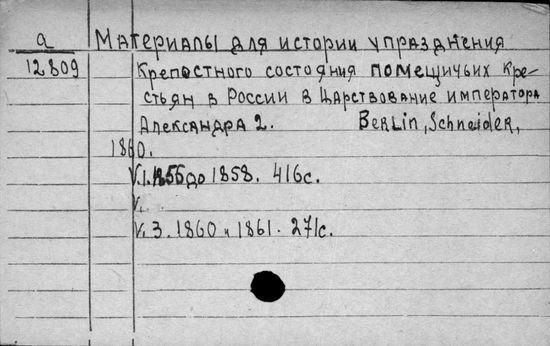 a Материалы для истории упразднения
12809 Крепостного состояния помещичьих кре-
стьян в России в царствование императора
Александра 2. Berlin, Schneider,
1860.
V.1.1855 до 1858. 416с.
V.
V.3.1860 и 1861. 271с.